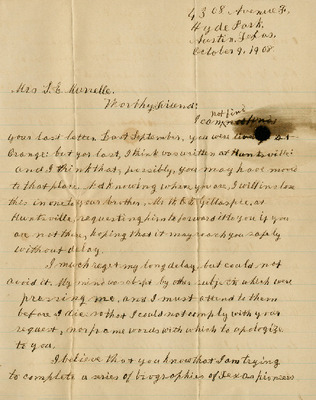 4308 Avenue F.
Hyde Park,
Austin, Texas.
October 9, 1908
Mrs. T. E.
Worthy friend:
I can not find
your last letter. Last September, you were at
Orange but your last, I think was written at Huntsville
and I think that, possibly, you may have moved
to that place. Not knowing where you are, I will inclose
this in one to your brother, Mr. Gillaspie, at
Huntsville, requesting him to forward it to you if you
are not there, hoping that it may reach you safely
without delay.
I much regret my long delay, but could not
avoid it. My mind was absorbed by other subjects which were
pressing me, and I must attend to them
before I die, so that I could not comply with your
request, nor frame words with which to apologize
to you.
I believe that you know that I am trying
to complete a series of biographies of Texas pioneers